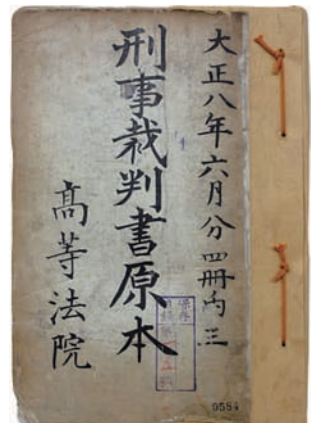 大正八年六月分四冊內三
刑事裁判書原本
高等法院
保存
0584